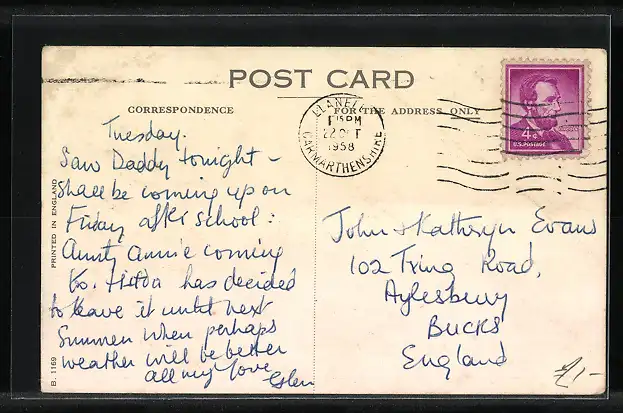 POST CARD
CORRESPONDENCE
FOR THE ADDRESS ONLY
LLANELLY
1 15 PM
22 OCT
1958
CARMARTHENSHIRE
4¢
U.S. POSTAGE
PRINTED IN ENGLAND
B. 1169
Tuesday.
Saw Daddy tonight -
shall be coming up on
Friday after school:
Aunty Annie coming
to. Hilda has decided
to leave it until next
Summer when perhaps
weather will be better
all my love
John & Kathryn Evans
102 Tring Road,
Aylesbury
BUCKS
England
£1-